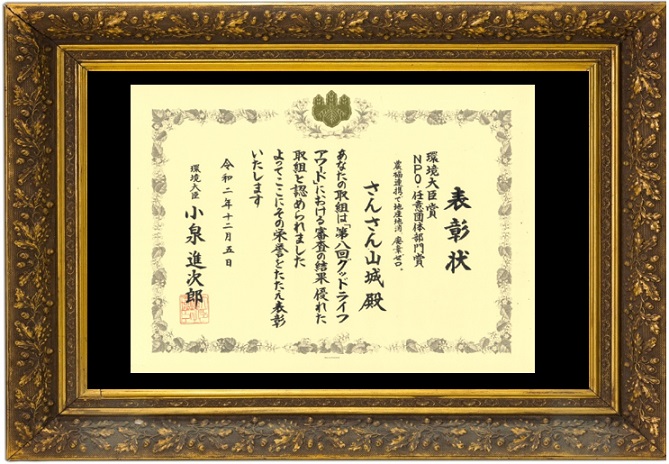 表彰状
環境大臣賞
NPO・任意団体部門賞
農福連携で地産地消 廃棄ゼロ。
さんさん山城 殿
あなたの取組は「第八回グッドライフ
アワード」における審査の結果優れた
取組と認められました
よってここにその栄誉をたたえ表彰
いたします
令和二年十二月五日
環境大臣 小泉進次郎